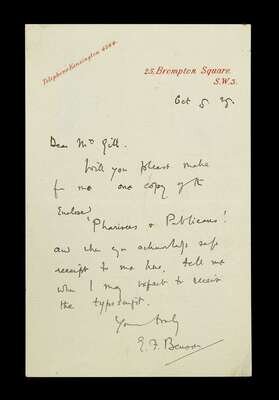 Telephone Kensington 4564.
25, Brompton Square.
S.W.3.
Oct 5 25.
Dear Mrs Gill.
Will you please make
for me one copy of the
Enclosed 'Pharisees & Publicans'!
and when you acknowledge safe
receipt to me here, tell me
when I may expect to receive
the typescript.
Yours truly
E. F. Benson